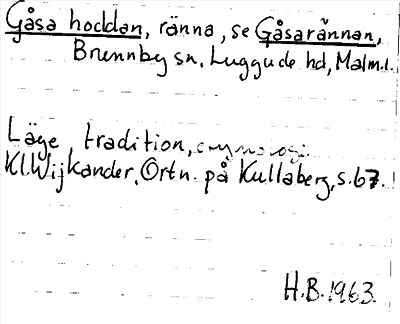 Gåsa hoddan, ränna, se Gåsarännan,
Brunnby sn, Luggude hd, Malm.l.
Läge, tradition, etymologi.
Kl. Wijkander, Ortn. på Kullaberg, s.67.
H.B. 1963.